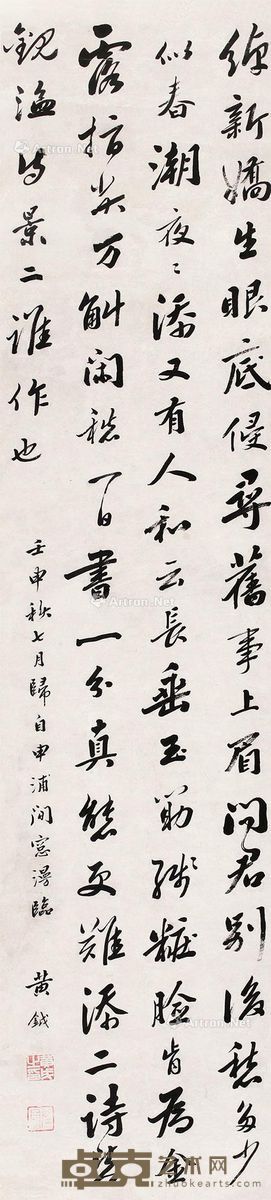 綽新嬌生眼底侵尋舊事上眉问君别後愁多少
似春潮夜々添又有人和云長垂玉筯殘粧臉肯為金
露指尖万斛闲愁一日書一分真態更難添二詩
觀景二誰作也
壬申秋七月歸自申浦閒窗漫臨 黄鉞
Artron.Net
卓克艺术网
www.zhuokearts.com